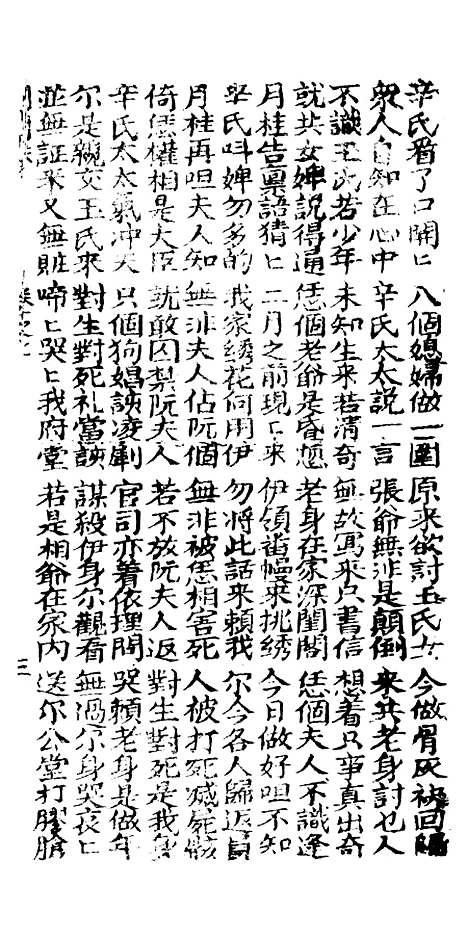 辛氏看了口開匕 八個媳婦做一圍 原來欲討玉氏女 今做骨灰袂回歸
衆人自知在心中 辛氏太太說一言 張爺無非是顛倒 來共老身討也人
不識玉氏若少年 未知生來若清奇 無故寫來只書信 想着只事真出奇
就共女婢說得通 恁個老爺是昏 老身在家深閨閣 恁個夫人不識逢
月桂告稟語猜匕 二月之前現匕來 伊領畨幔來挑綉 今日做好呾不知
辛氏叫婢勿多的 我家綉花何用伊 勿將此話來賴我 尔今各人歸返員
月桂再呾夫人知 無非夫人佔阮個 無非被恁相害死 人被打死滅屍骸
倚恁權相是大臣 就敢囚禁阮夫人 若不放阮夫人返 對生對死是我身
辛氏太太氣冲天 只個狗娼該凌剮 官司亦着依理問 哭賴老身是做年
尔是親交玉氏來 對生對死礼當該 謀殺伊身尔觀看 無過尔身哭哀匕
並無証来又無賍 啼匕哭匕我府堂 若是相爺在家內 送尔公堂打膠
三